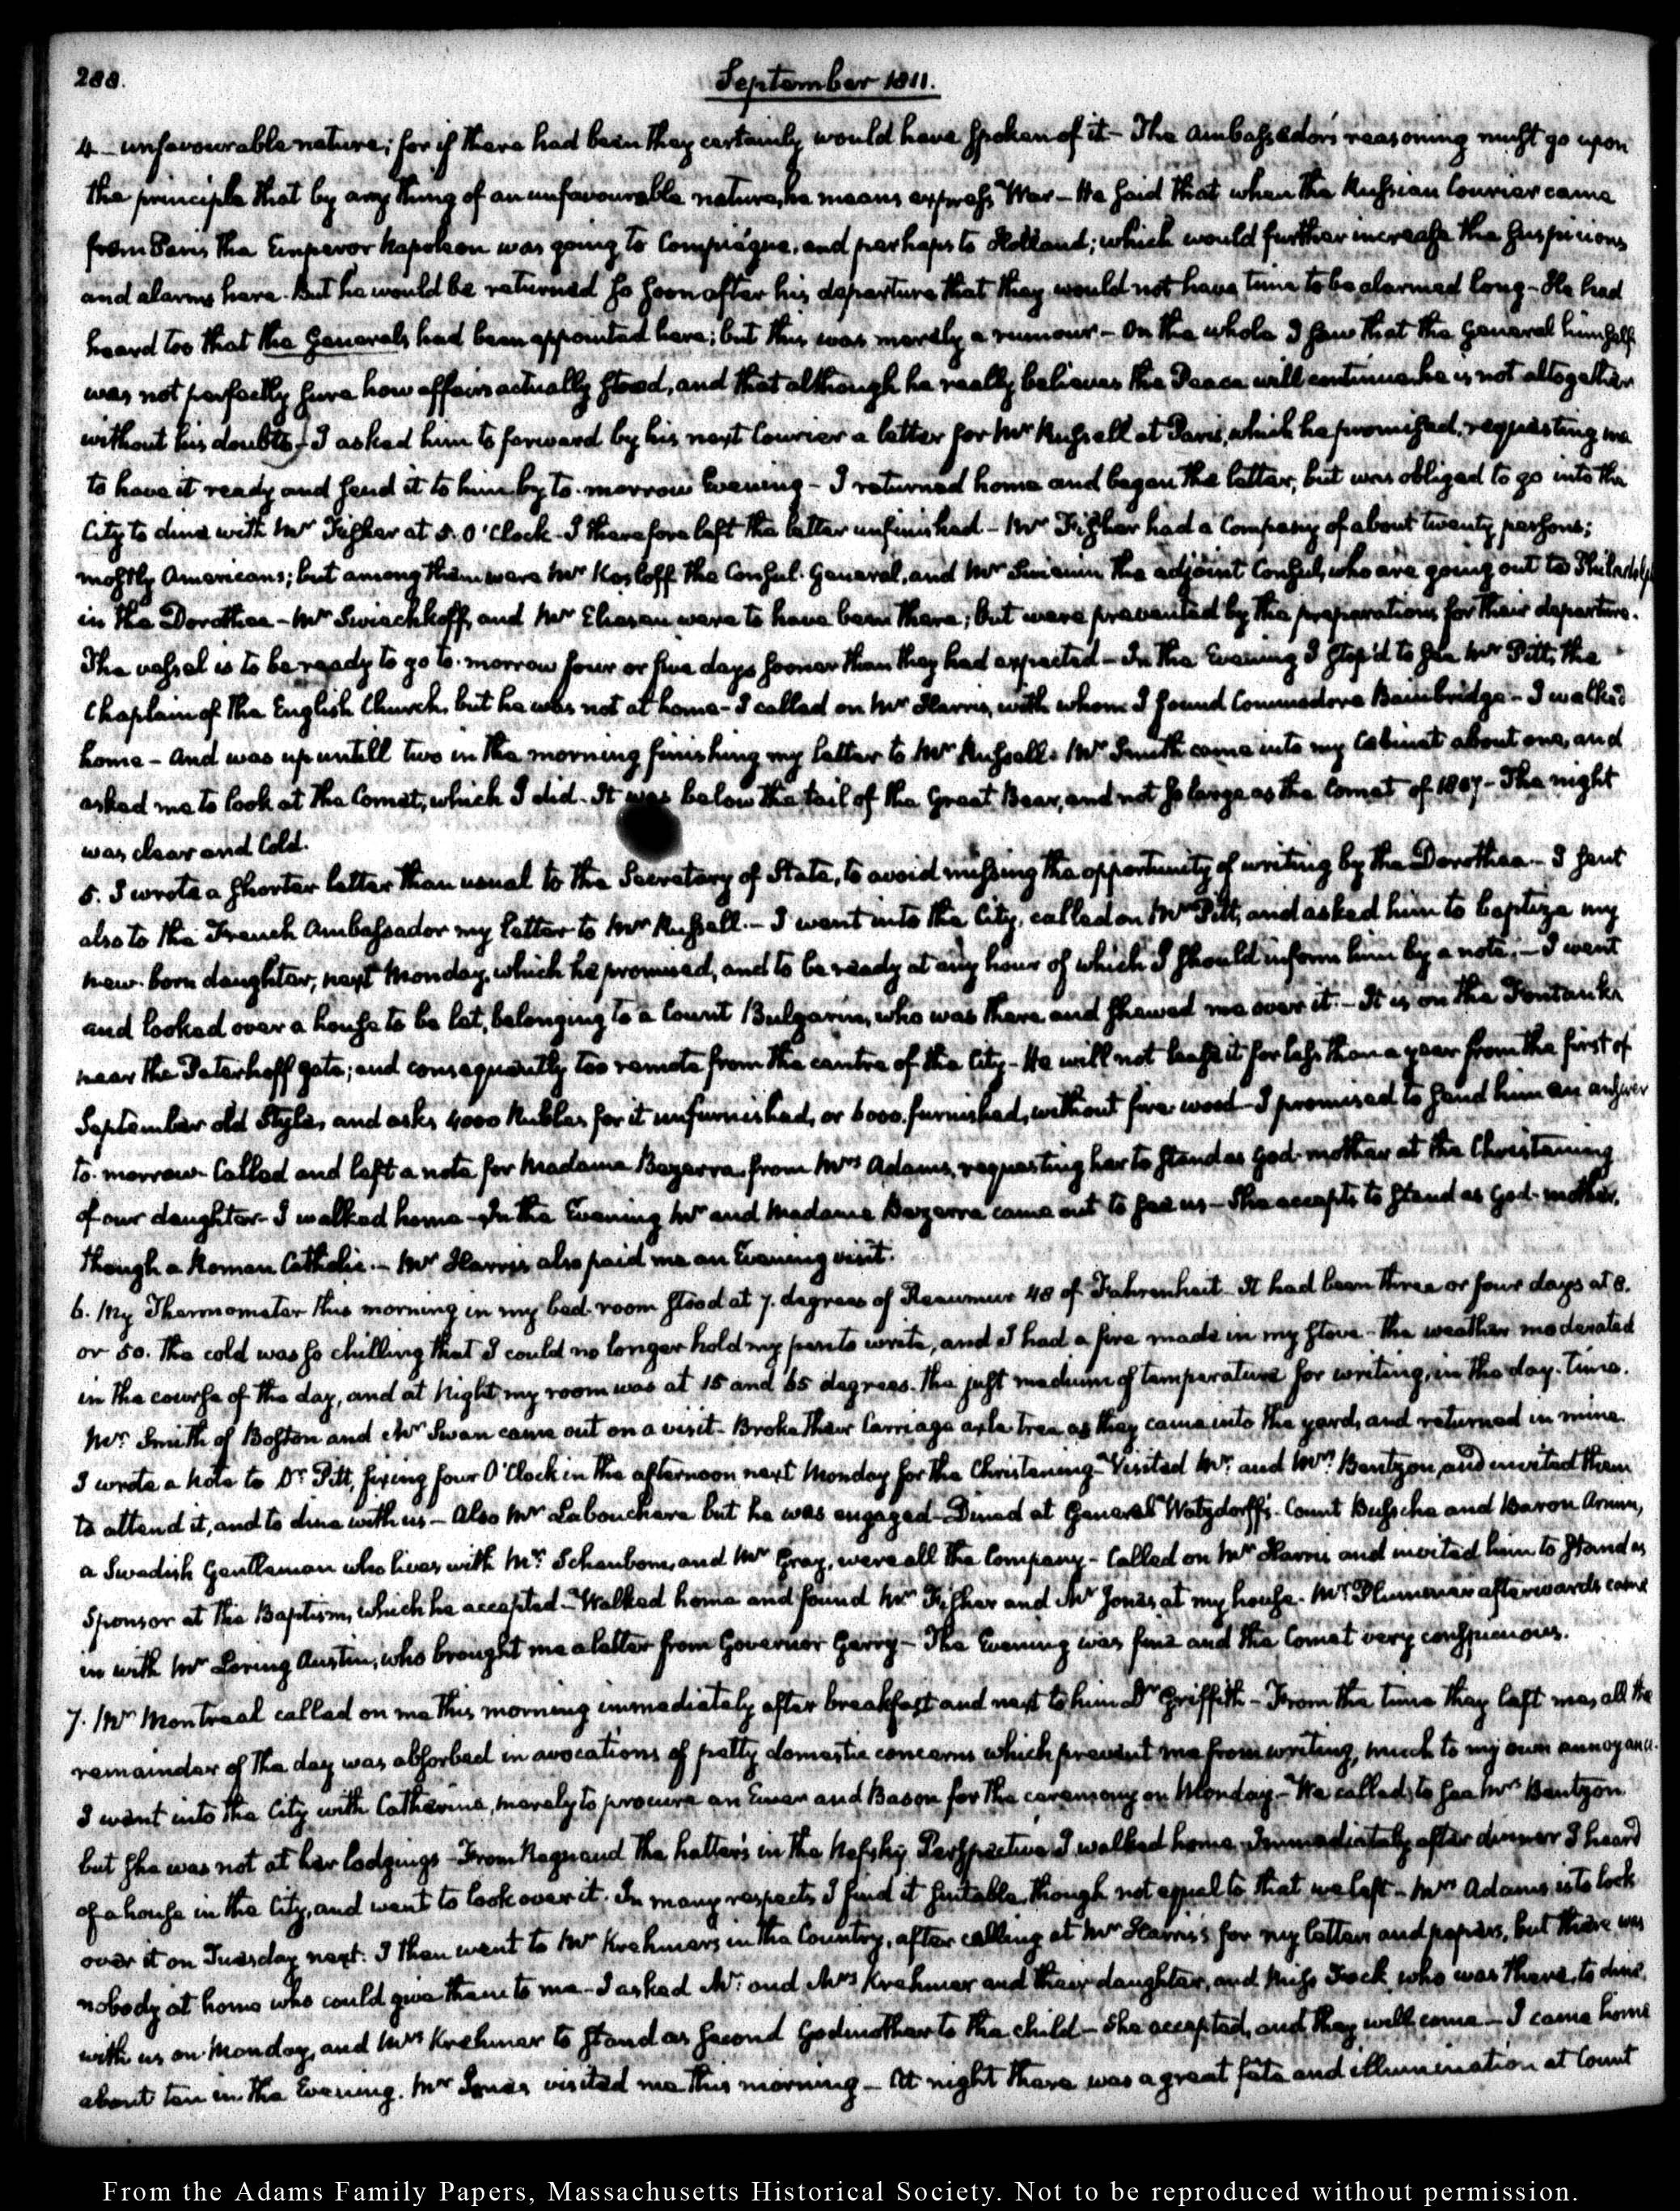 288.
September 1811.
4 – unfavourable nature; for if there had been they certainly would have spoken of it – The Ambassador's reasoning must go upon
the principle that by any thing of an unfavourable nature, he means express War – He said that when the Russian Courier came
from Paris the Emperor Napoleon was going to Compiégne, and perhaps to Holland; which would further increase the suspicions
and alarms here. But he would be returned so soon after his departure that they would not have time to be alarmed long – He had
heard too that the Generals had been appointed here; but this was merely a rumour – On the whole I saw that the General himself
was not perfectly sure how affairs actually stood, and that although he really believes the Peace will continue he is not altogether
without his doubts – I asked him to forward by his next Courier a letter for Mr Russell at Paris, which he promised, requesting me
to have it ready and send it to him by to-morrow Evening – I returned home and began the letter, but was obliged to go into the
City to dine with Mr Fisher at 5. O'Clock – I therefore left the letter unfinished – Mr Fisher had a Company of about twenty persons;
mostly Americans; but among them were Mr Kosloff the Consul-General, and Mr Swinin the adjoint Consul, who are going out to Philadelp
in the Dorothea – Mr Swiechkoff, and Mr Eliasen were to have been there; but were prevented by the preparations for their departure.
The vessel is to be ready to go to-morrow four or five days sooner than they had expected – In the Evening I stop'd to see Mr Pitt, the
Chaplain of the English Church, but he was not at home – I called on Mr Harris, with whom I found Commodore Bainbridge – I walked
home – And was up untill two in the morning finishing my letter to Mr Russell. Mr Smith came into my Cabinet about one, and
asked me to look at the Comet, which I did. It was below the tail of the Great Bear, and not so large as the Comet of 1807 – The night
was clear and Cold.
5. I wrote a shorter letter than usual to the Secretary of State, to avoid missing the opportunity of writing by the Dorothea – I sent
also to the French Ambassador my letter to Mr Russell. – I went into the City, called on Mr Pitt, and asked him to baptize my
new-born daughter, next Monday, which he promised, and to be ready at any hour of which I should inform him by a note. – I went
and looked over a house to be let, belonging to a Count Bulgarin, who was there and shewed me over it. – It is on the Fontanka
near the Peterhoff gate; and consequently too remote from the centre of the City – He will not lease it for less than a year from the first of
September old Style, and asks 4000 Rubles for it unfurnished, or 6000 furnished, without fire-wood – I promised to send him an answer
to-morrow. Called and left a note for Madame Bezerra from Mrs Adams, requesting her to stand as God-mother at the Christening
of our daughter – I walked home – In the Evening Mr and Madame Bezerra came out to see us – She accepts to stand as God-mother,
though a Roman Catholic. – Mr Harris also paid me an Evening visit.
6. My Thermometer this morning in my bed-room stood at 7. degrees of Reaumur 48 of Fahrenheit – It had been three or four days at 8.
or 50. The cold was so chilling that I could no longer hold my pen to write, and I had a fire made in my stove – The weather moderated
in the course of the day, and at Night my room was at 15 and 65 degrees. The just medium of temperature for writing, in the day-time.
Mr. Smith of Boston and Mr Swan came out on a visit – Broke their Carriage axle tree as they came into the yard, and returned in mine.
I wrote a Note to Dr Pitt, fixing four O'Clock in the afternoon next Monday for the Christening – Visited Mr. and Mrs. Bentzon, and invited them
to attend it, and to dine with us – Also Mr Labouchere but he was engaged – Dined at General Watzdorff's. Count Bussche and Baron Arnim,
a Swedish Gentleman who lives with Mr. Schenbom, and Mr Gray, were all the Company – Called on Mr Harris and invited him to stand as
Sponsor at the Baptism, which he accepted – Walked home and found Mr Fisher and Mr Jones at my house. Mr. Plummer afterwards came
in with Mr Loring Austin, who brought me a letter from Governor Gerry – The Evening was fine and the Comet very conspicuous.
7. Mr Montreal called on me this morning immediately after breakfast and next to him Dr Griffith – From the time they left me, all the
remainder of the day was absorbed in avocations of petty domestic concerns which prevent me from writing, much to my own annoyance.
I went into the City with Catherine, merely to procure an Ewer and Bason for the ceremony on Monday. – We called to see Mrs Bentzon
but she was not at her lodgings – From the hatter's in the Nefsky Perspective I walked home – Immediately after dinner I heard
of a house in the City, and went to look over it. In many respects I find it suitable, though not equal to that we left – Mrs Adams is to look
over it on Tuesday next. I then went to Mr Krehmer's in the Country, after calling at Mr Harris's for my letters and papers, but there was
nobody at home who could give them to me – I asked Mr. and Mrs Krehmer and their daughter, and Miss Fock, who was there, to dine
with us on Monday, and Mrs Krehmer to stand as second Godmother to the child – She accepted, and they will come – I came home
about ten in the Evening. Mr Jones visited me this morning – At night there was a great fête and illumination at Count
From the Adams Family Papers, Massachusetts Historical Society. Not to be reproduced without permission.